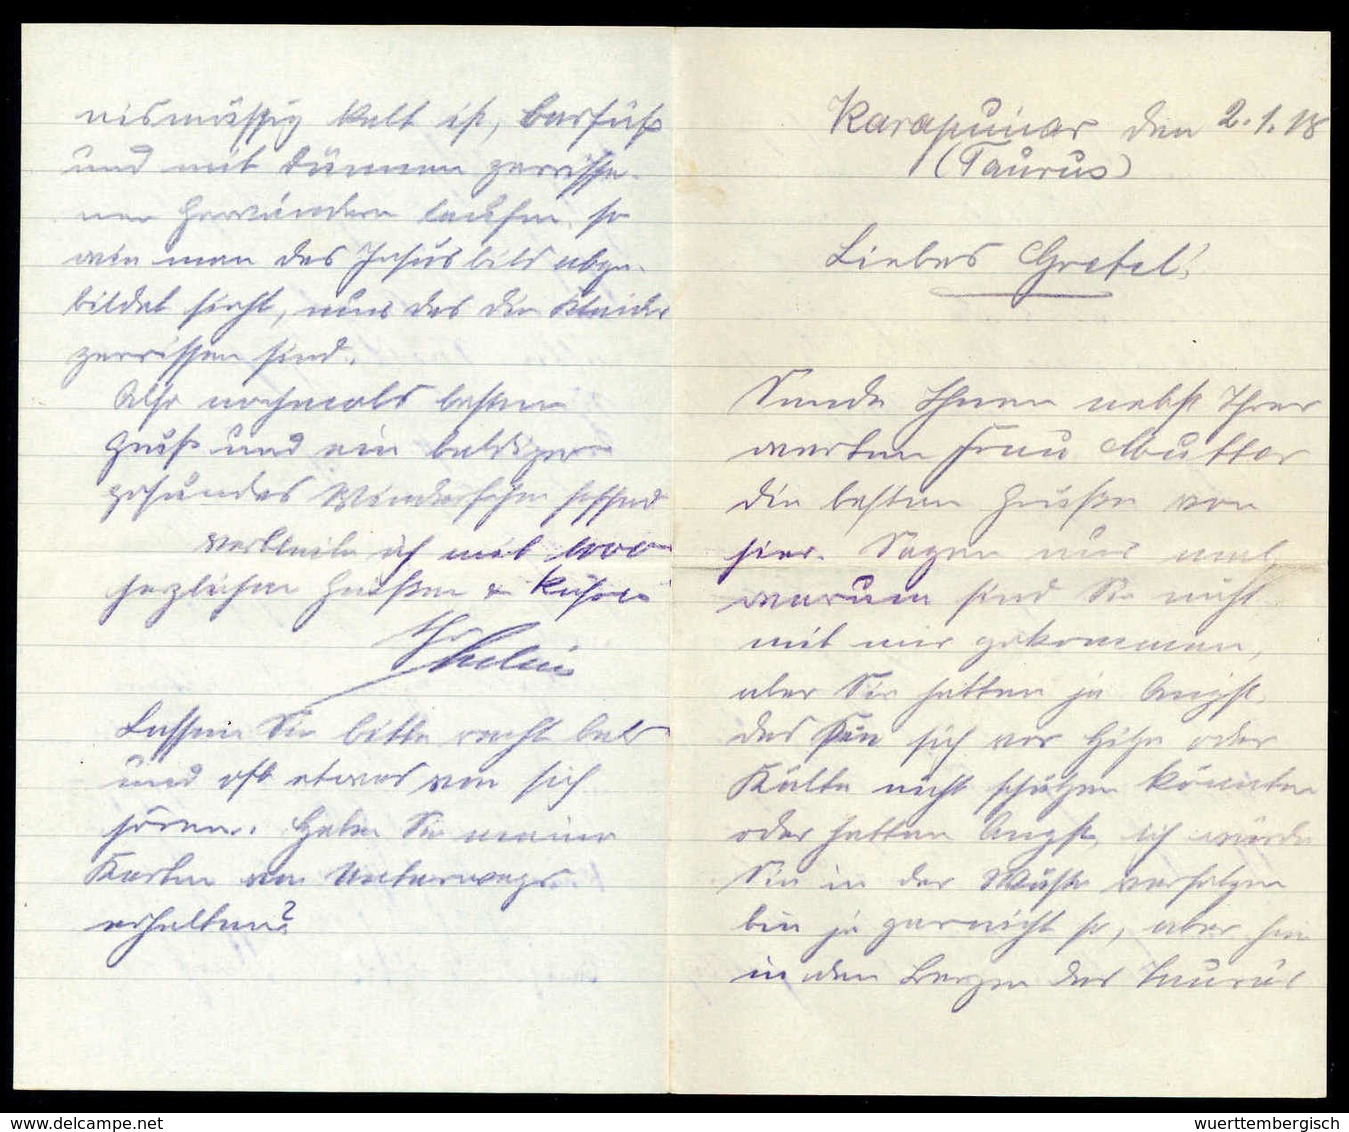 Karapunar den 2.1.18
(Taurus)
Liebes Gretel!
Sende Ihnen nebst Ihrer
werten Frau Mutter
die besten Grüße von
hier. Sagen nur mal,
warum sind Sie nicht
mit mir gekommen,
aber Sie hätten ja Angst,
das Sie sich vor Hitze oder
Kälte nicht schützen könnten
oder hatten Angst, ich würde
Sie in der Wüste verfolgen
bin ja garnicht so, aber hier
in den Bergen des Taurus
nismässig kalt ist, barfuß
und mit dünnen zerrisse-
nen Gewändern laufen, so
wie man das Jesusbild abge-
bildet sieht, nur das die Kleider
zerrissen sind.
Also nochmals besten
Gruß und ein baldiges
gesundes Wiedersehn hoffend
verbleibe ich mit 1000
herzlichen Grüßen & Küssen
Ihr
Lassen Sie bitte recht bald
und oft etwas von sich
hören. Haben Sie meine
Karten von Unterwegs
erhalten?
wuerttembergisch